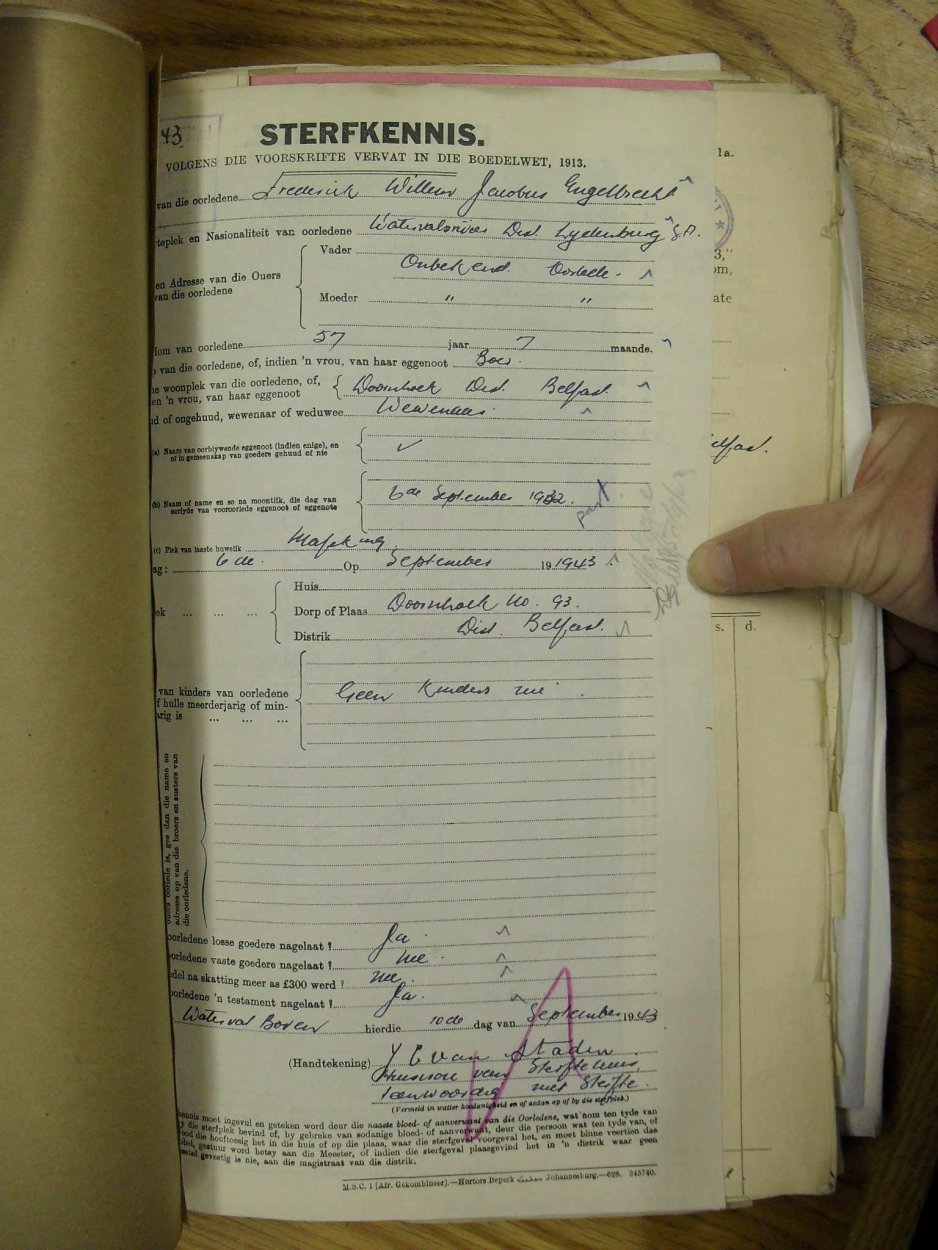 43
STERFKENNIS.
VOLGENS DIE VOORSKRIFTE VERVAT IN DIE BOEDELWET, 1913.
1a.
van die oorledene Frederick Willem Jacobus Engelbrecht
rteplek en Nasionaliteit van oorledene Watervalrivier Dist. Lydenburg S.A.
Vader
Onbekend. Oorlede.
en Adresse van die Ouers
van die oorledene
Moeder " "
dom van oorledene 57 jaar 7 maande.
van die oorledene, of, indien 'n vrou, van haar eggenoot Boer.
ne woonplek van die oorledene, of,
en 'n vrou, van haar eggenoot Doornhoek Dist. Belfast.
ud of ongehuud, wewenaar of weduwee Wewenaar.
(a) Naam van oorblywende eggenoot (indien enige), en
of in gemeenskap van goedere gehuud of nie
(b) Naam of name en so na moontlik, die dag van
oorlyde van vooroorlede eggenoot of eggenote 6de September 1932.
(c) Plek van laaste huwelik Mafeking
ag: 6de Op September 19 1943
Huis
ek ... ... ... Dorp of Plaas Doornhoek No. 93.
Distrik Dist. Belfast.
s. d.
van kinders van oorledene
f hulle meerderjarig of min-
arig is ... ... ... Geen kinders nie.
ouers oorlede is, gee dan die name en
adresse op van die broers en susters van
die oorledene.
oorledene losse goedere nagelaat? Ja.
oorledene vaste goedere nagelaat? nee.
del na skatting meer as £300 werd? nee.
oorledene 'n testament nagelaat? Ja.
Waterval Boven hierdie 10de dag van September 1943
(Handtekening) van Staden
van Sterfte huis
met Sterfte.
(Vermeld in watter hoedanigheid en of aedan op of by die sterfplek.)
kennis moet ingevul en geteken word deur die naaste bloed- of aanverwant van die Oorledene, wat nom ten tyde van
y die sterfplek bevind of, by gebreke van sodanige bloed- of aanverwant, deur die persoon wat ten tyde van, of
ood die hooftoesig het in die huis of op die plaas, waar die sterfgeval voorgeval het, en moet binne veertien dae
gestuur word hetsy aan die Meester, of indien die sterfgeval plaasgevind het in 'n distrik waar geen
gevestig is nie, aan die magistraat van die distrik.
M.S.C. 1 (Afr. Gekombineer).—Hortors Beperk Johannesburg.—628. 345740.